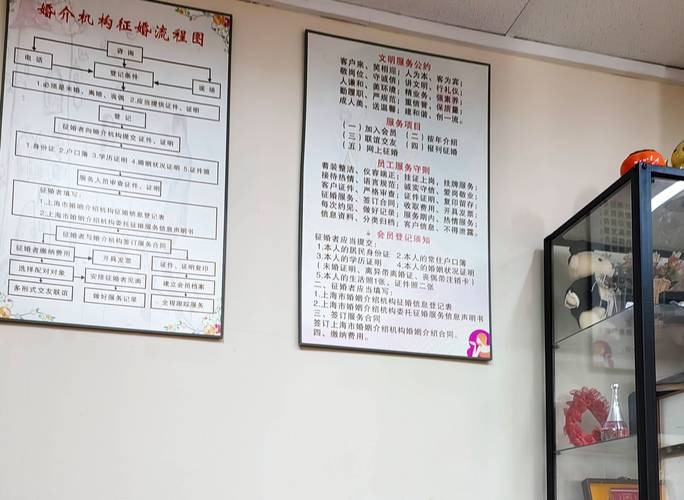 婚介机构征婚流程图
咨询
电话
登记条件
现场
1.必须是未婚、离婚、丧偶 2.应当提供证件、证明
登记
征婚者向婚介机构提交证件、证明
1.身份证 2.户口簿 3.学历证明 4.婚姻状况证明 5.证件照
服务人员审查证件、证明
征婚者填写：
1.上海市婚姻介绍机构征婚信息登记表
2.上海市婚姻介绍机构委托征婚服务信息声明书
征婚者与婚介机构签订服务合同
征婚者缴纳费用
开具发票
证件、证明复印
选择配对对象
安排征婚者见面
建立会员档案
多形式交友联谊
做好服务记录
全程跟踪服务
文明服务公约
客户来，笑相迎；人为本，客为宾；
敬岗位，守诚信；讲文明，行礼仪；
人谦和，美环境；精业务，强素养；
勤履职，严规范；重信誉，保质量；
成人美，送温馨；建和谐，创一流。
服务项目
（一）加入会员 （二）按年介绍
（三）联谊交友 （四）报刊征婚
（五）网上征婚
员工服务守则
着装整洁，仪容端正；挂证上岗，挂牌服务；
接待热情，语言规范；诚实守信，爱岗敬业；
客户证件，严格审查；证件证明，复印留存；
征婚服务，签订合同；收取费用，开具发票；
每次约见，做好记录；服务期内，热情服务；
信息资料，分类归档；客户信息，不得泄露。
会员登记须知
征婚者应当提交：
1.本人的居民身份证 2.本人的常住户口簿
3.本人的学历证明 4.本人的婚姻状况证明
（未婚证明、离异带离婚证、丧偶带注销卡）
5.本人的生活照1张，证件照二张
二、征婚者应当填写：
1.上海市婚姻介绍机构征婚信息登记表
2.上海市婚姻介绍机构委托征婚服务信息声明书
三、签订服务合同
签订上海市婚姻介绍机构婚姻介绍合同。
四、缴纳费用。